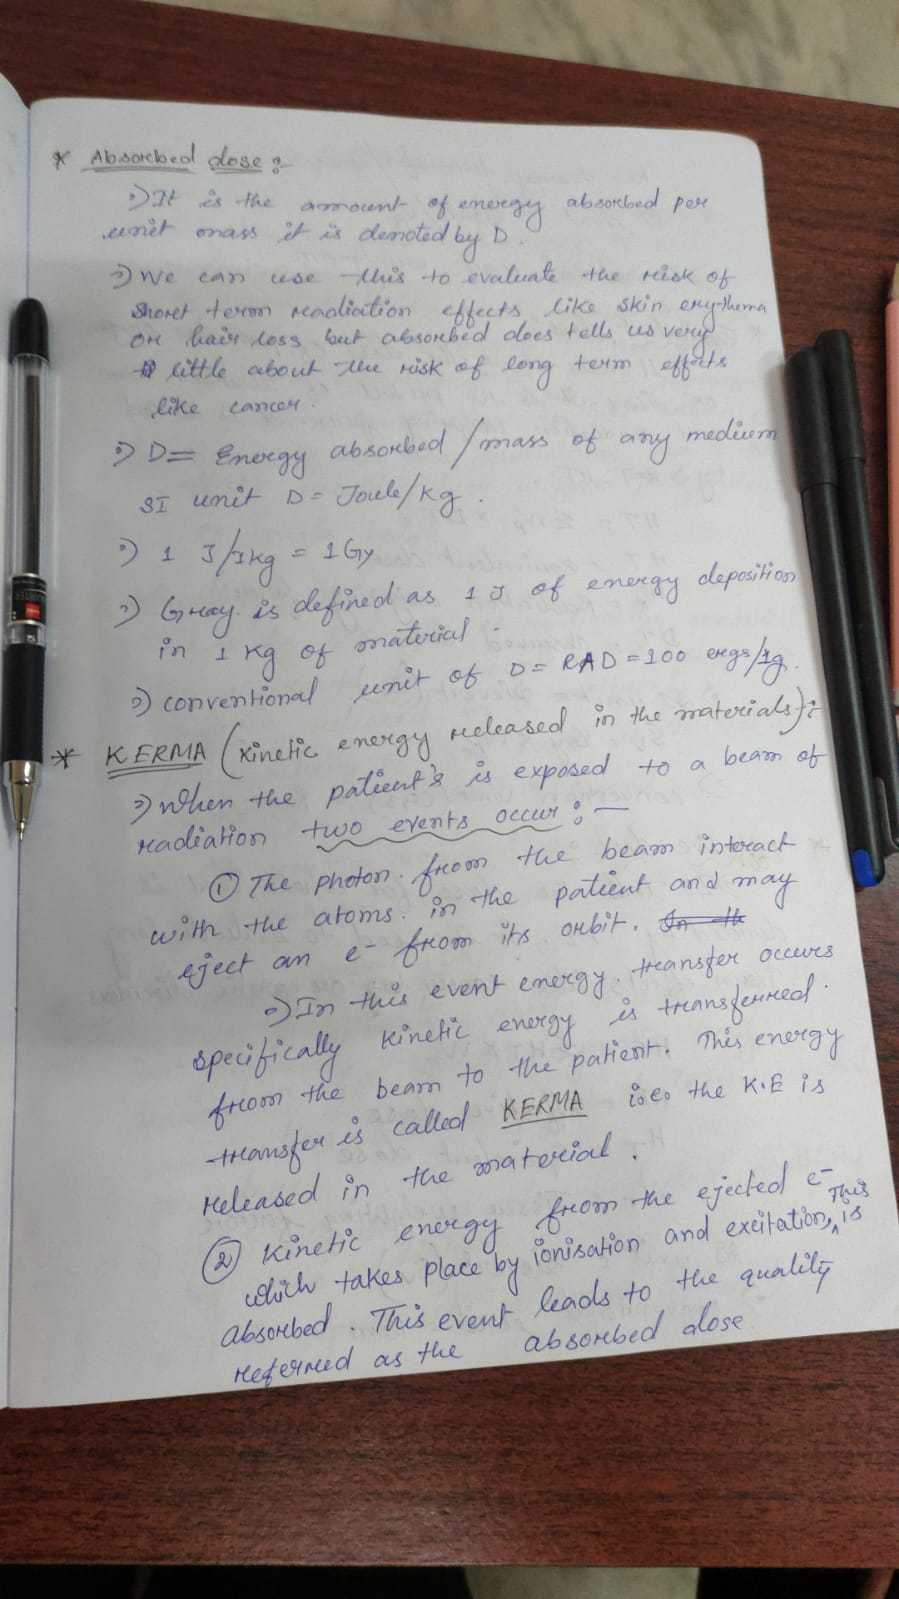 * Absorbed dose :-
•) It is the amount of energy absorbed per
unit mass it is denoted by D.
•) We can use this to evaluate the risk of
short term radiation effects like skin erythema
or hair loss but absorbed does tells us very
little about the risk of long term effects
like cancer.
•) D = Energy absorbed / mass of any medium
SI unit D = Joule/kg.
•) 1 J/1kg = 1 Gy
•) Gray is defined as 1 J of energy deposition
in 1 kg of material.
•) conventional unit of D = RAD = 100 ergs/1g.
* KERMA (kinetic energy released in the materials) :
•) When the patient's is exposed to a beam of
radiation two events occur :-
① The photon from the beam interact
with the atoms in the patient and may
eject an e- from its orbit. In th
•) In this event energy transfer occurs
specifically kinetic energy is transferred
from the beam to the patient. This energy
transfer is called KERMA i.e. the K.E is
released in the material.
② Kinetic energy from the ejected e-
which takes place by ionisation and excitation, This is
absorbed. This event leads to the quality
referred as the absorbed dose